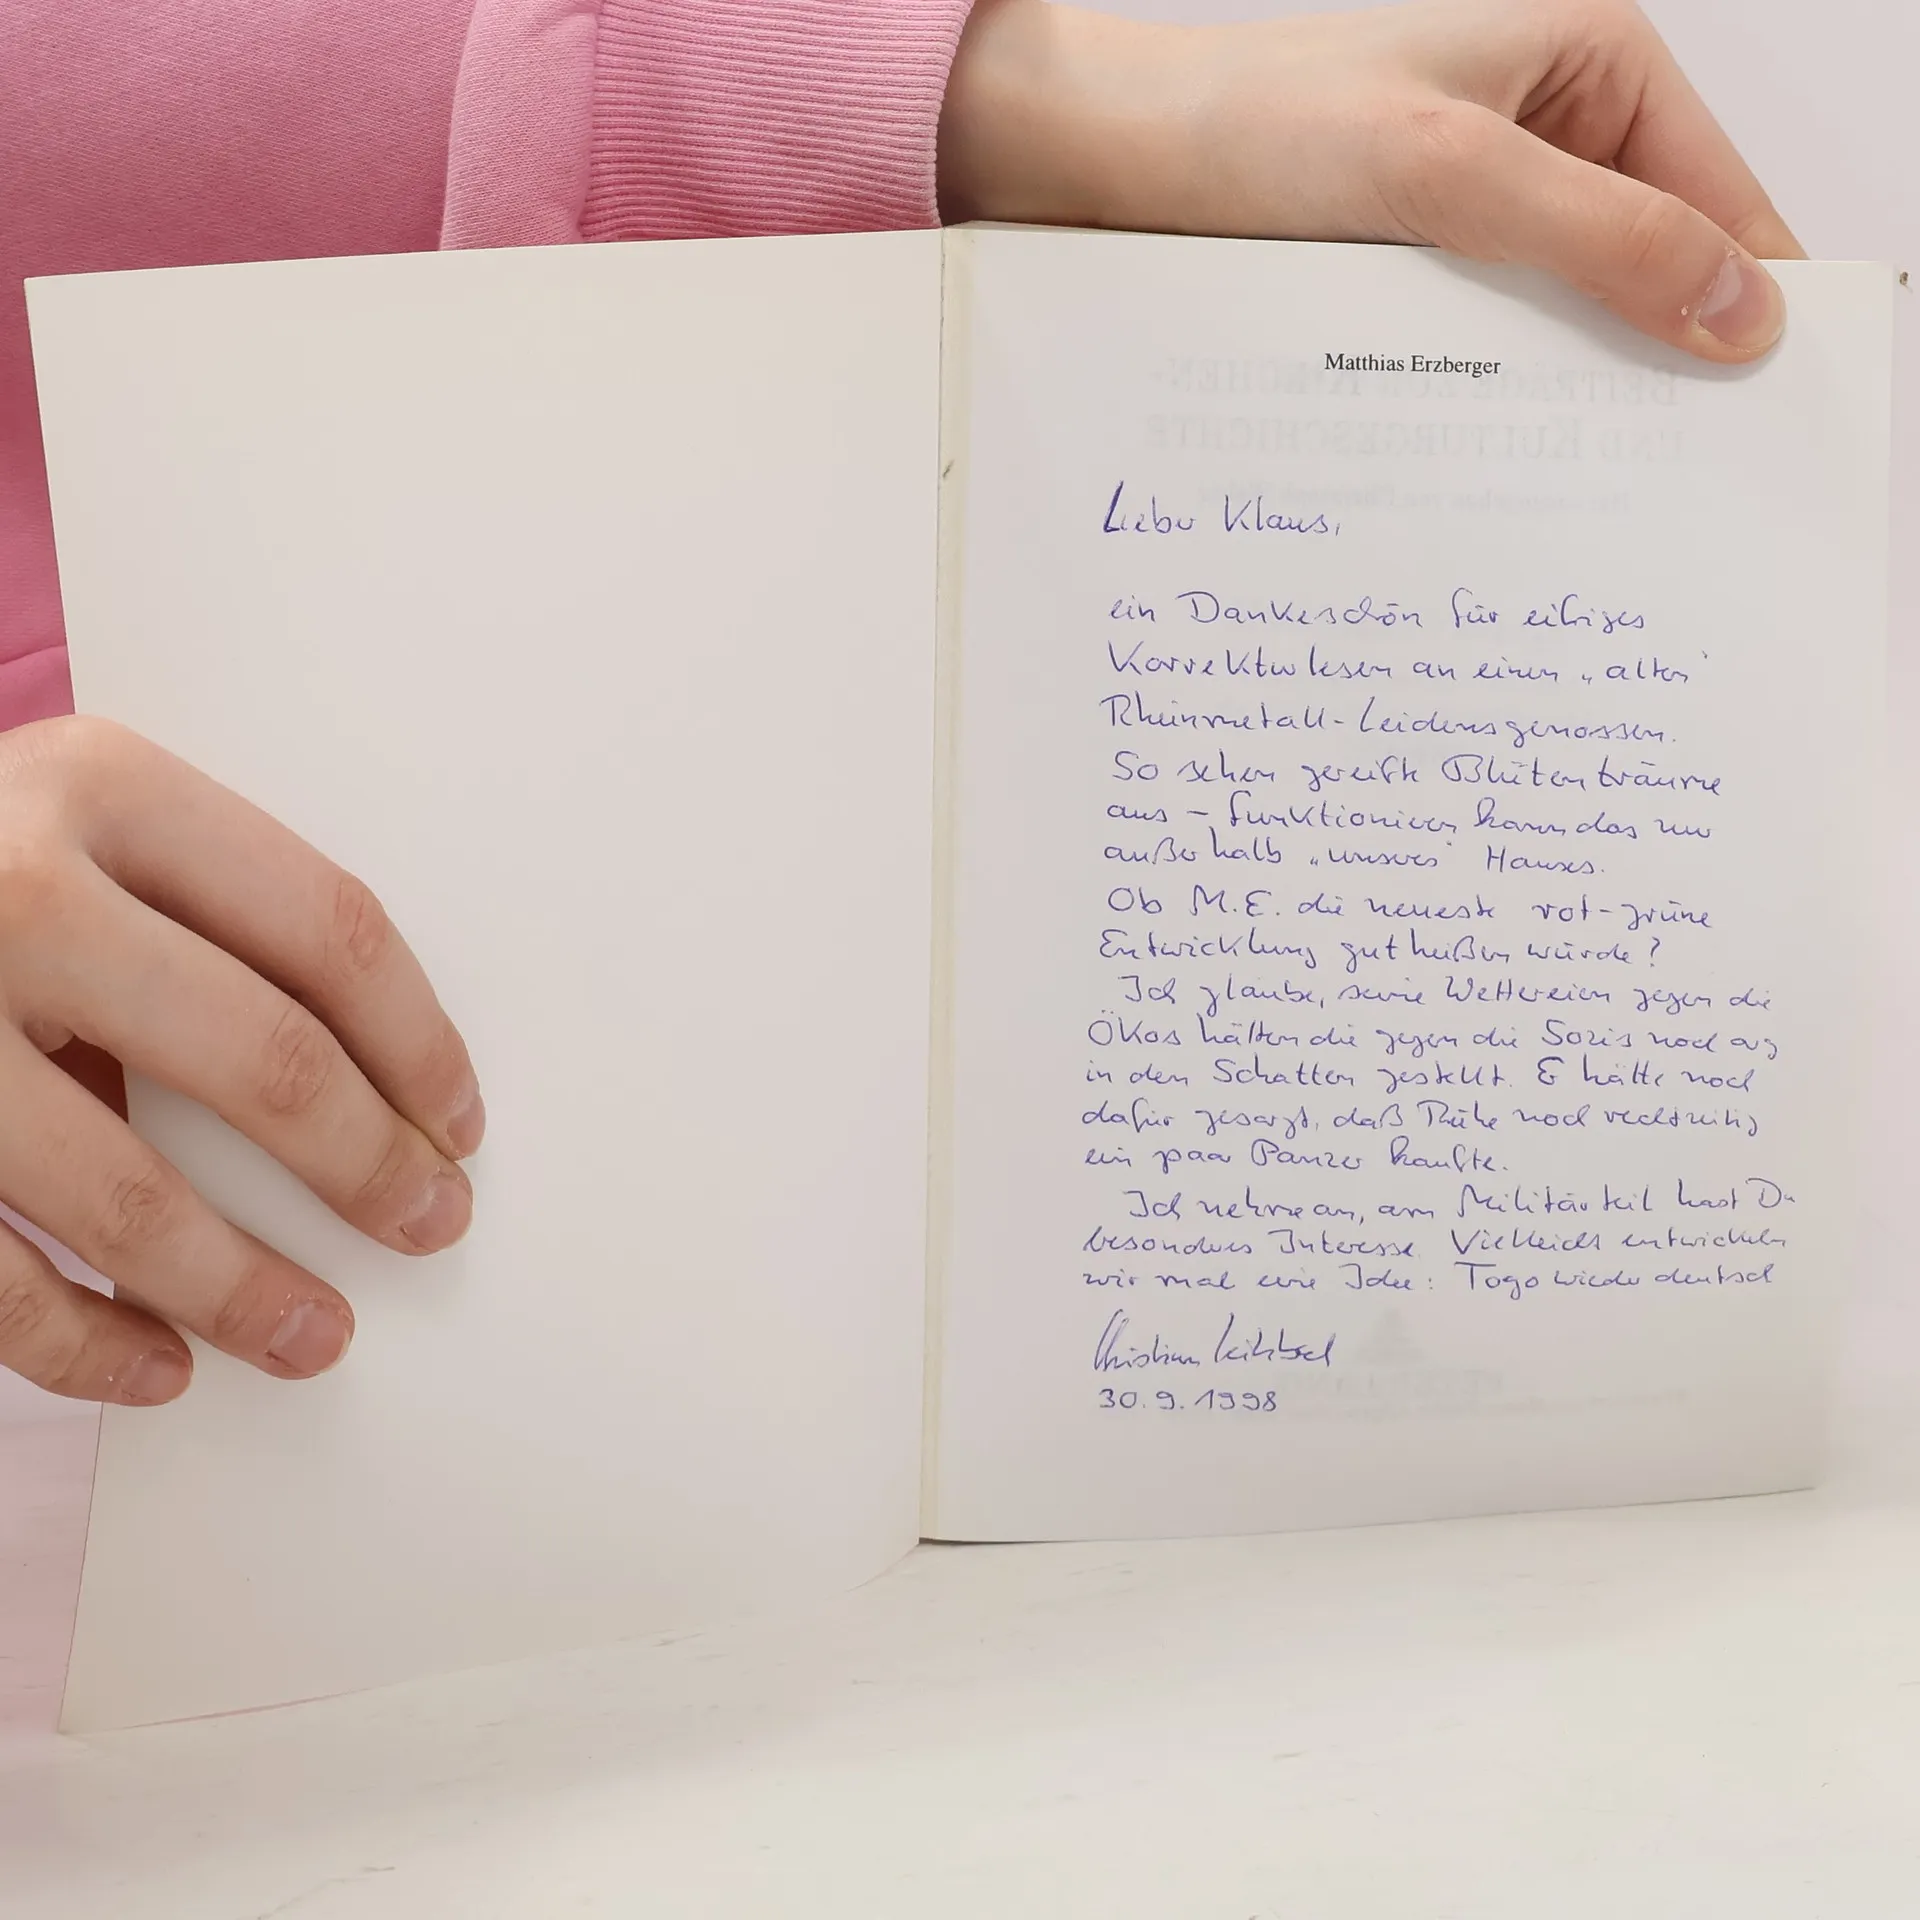 Matthias Erzberger
Lieber Klaus,
ein Dankeschön für eifriges
Korrekturlesen an einen „alten“
Rheinmetall-Leidensgenossen.
So sehen gereifte Blütenträume
aus – funktionieren kann das nur
außerhalb „unseres“ Hauses.
Ob M.E. die neueste rot-grüne
Entwicklung gutheißen würde?
Ich glaube, seine Wettereien gegen die
Ökos hätten die gegen die Sozis noch arg
in den Schatten gestellt. Er hätte noch
dafür gesorgt, daß Rühe noch rechtzeitig
ein paar Panzer kaufte.
Ich nehme an, am Militärteil hast Du
besonderes Interesse. Vielleicht entwickeln
wir mal eine Idee: Togo wieder deutsch
Christian
30.9.1998